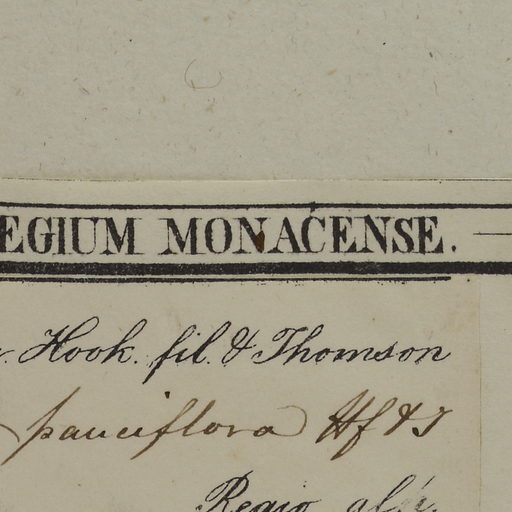 EGIUM MONACENSE.
Hook. fil. & Thomson
pauciflora Hf & T
Regio alp.